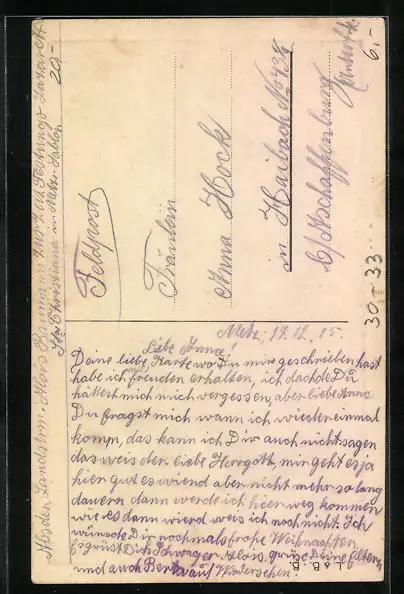 Feldpost
Fräulein
Anna Hock
in Haibach No 428
b/Aschaffenburg
20.-
6.-
30-33
Metz, 17.12.15.
Liebe Anna!
Deine liebe Karte wo Du mir geschrieben hast
habe ich mit freuden erhalten, ich dachde Du
hättest mich vergessen, aber liebe Anna
Du fragst mich wann ich wieder einmal
komm, das kann ich Dir auch nicht sagen
das weis der liebe Herrgott, mir geht es ja
hier gut es wierd aber nicht mehr so lang
dauern dann werde ich hier weg kommen
wie es dann wierd weis ich noch nicht. Ich
wünsche Dir nochmals frohe Weihnachten
Es grüst Dich Schwager Alois, grüse Deine Eltern
und auch Berta auf Wiedersehen!
Landstrm. Alois Baumann
in Metz-Sablon